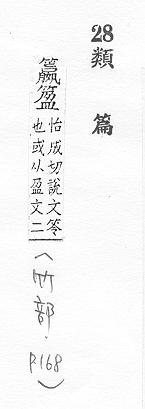 28
類篇
籯
怡成切說文笭
也或从盈文二
(竹部.P168)